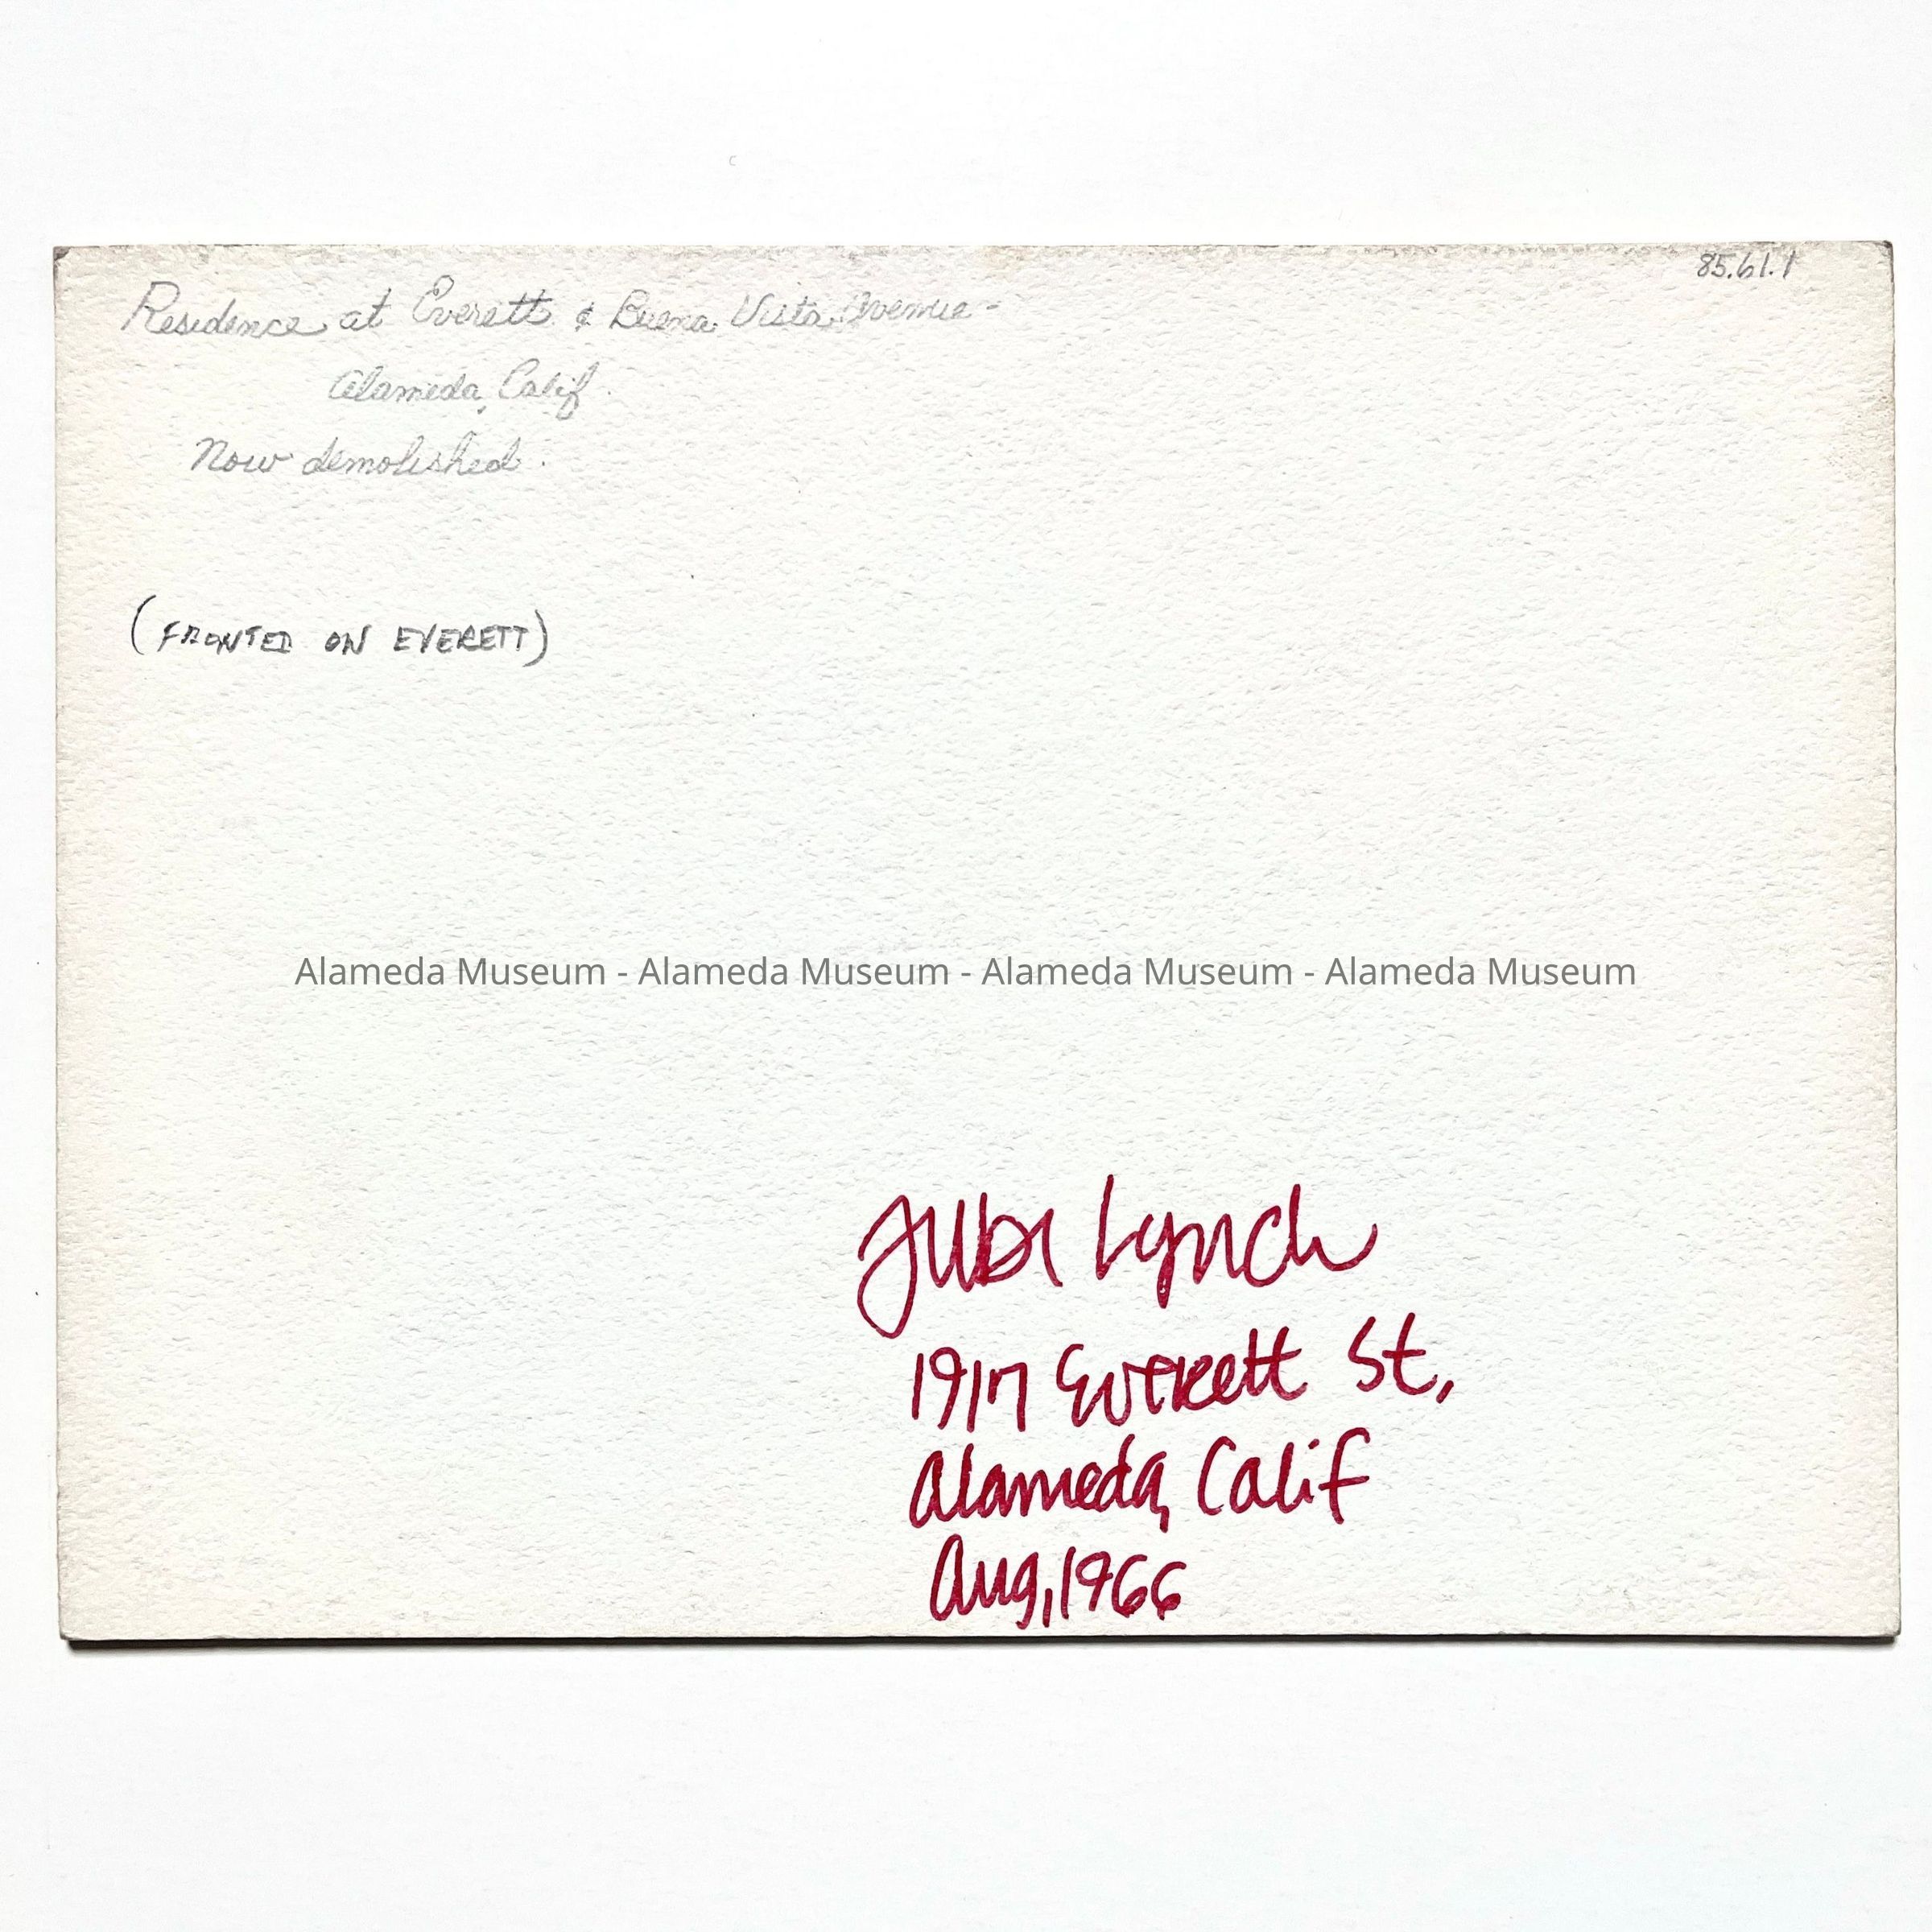 85.61.1
Residence at Everett & Buena Vista Avenue -
Alameda, Calif.
Now demolished.
(FRONTED ON EVERETT)
Alameda Museum - Alameda Museum - Alameda Museum - Alameda Museum
Lynch
1917 Everett St,
Alameda, Calif
Aug, 1966